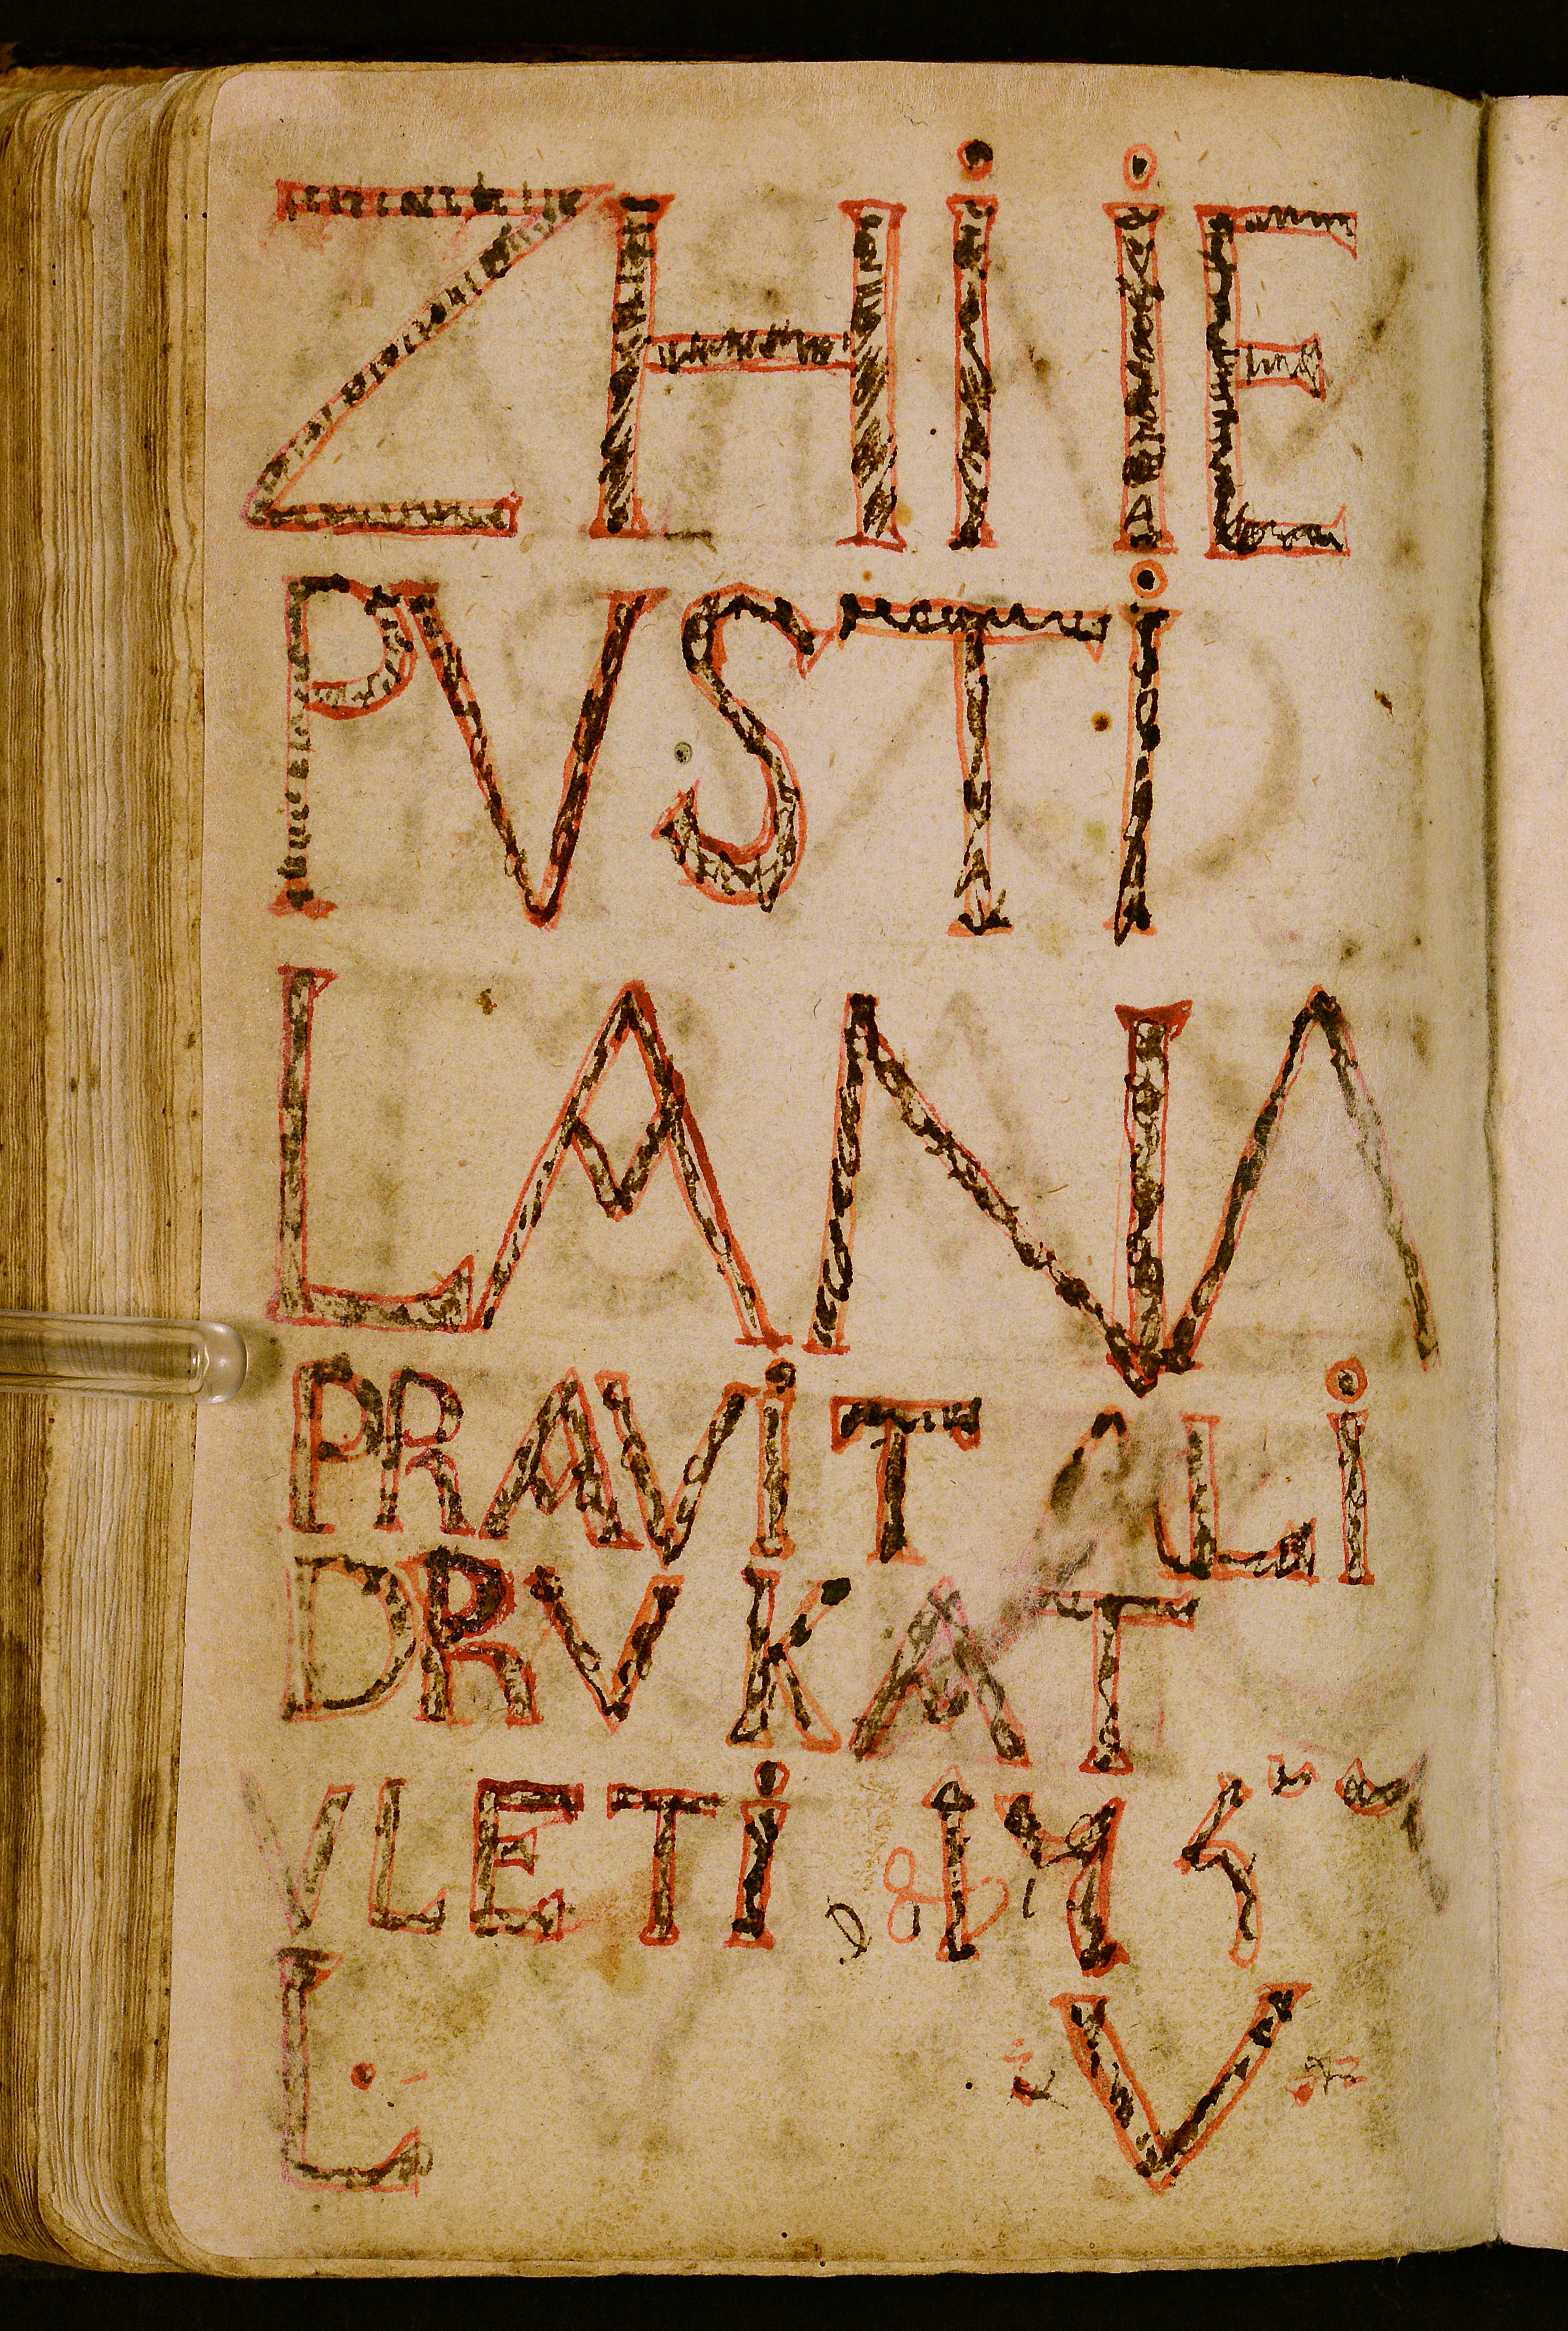 ZHiiE
PVSTi
LANIA
PRAViT ALi
DRVKAT
VLETi
L V